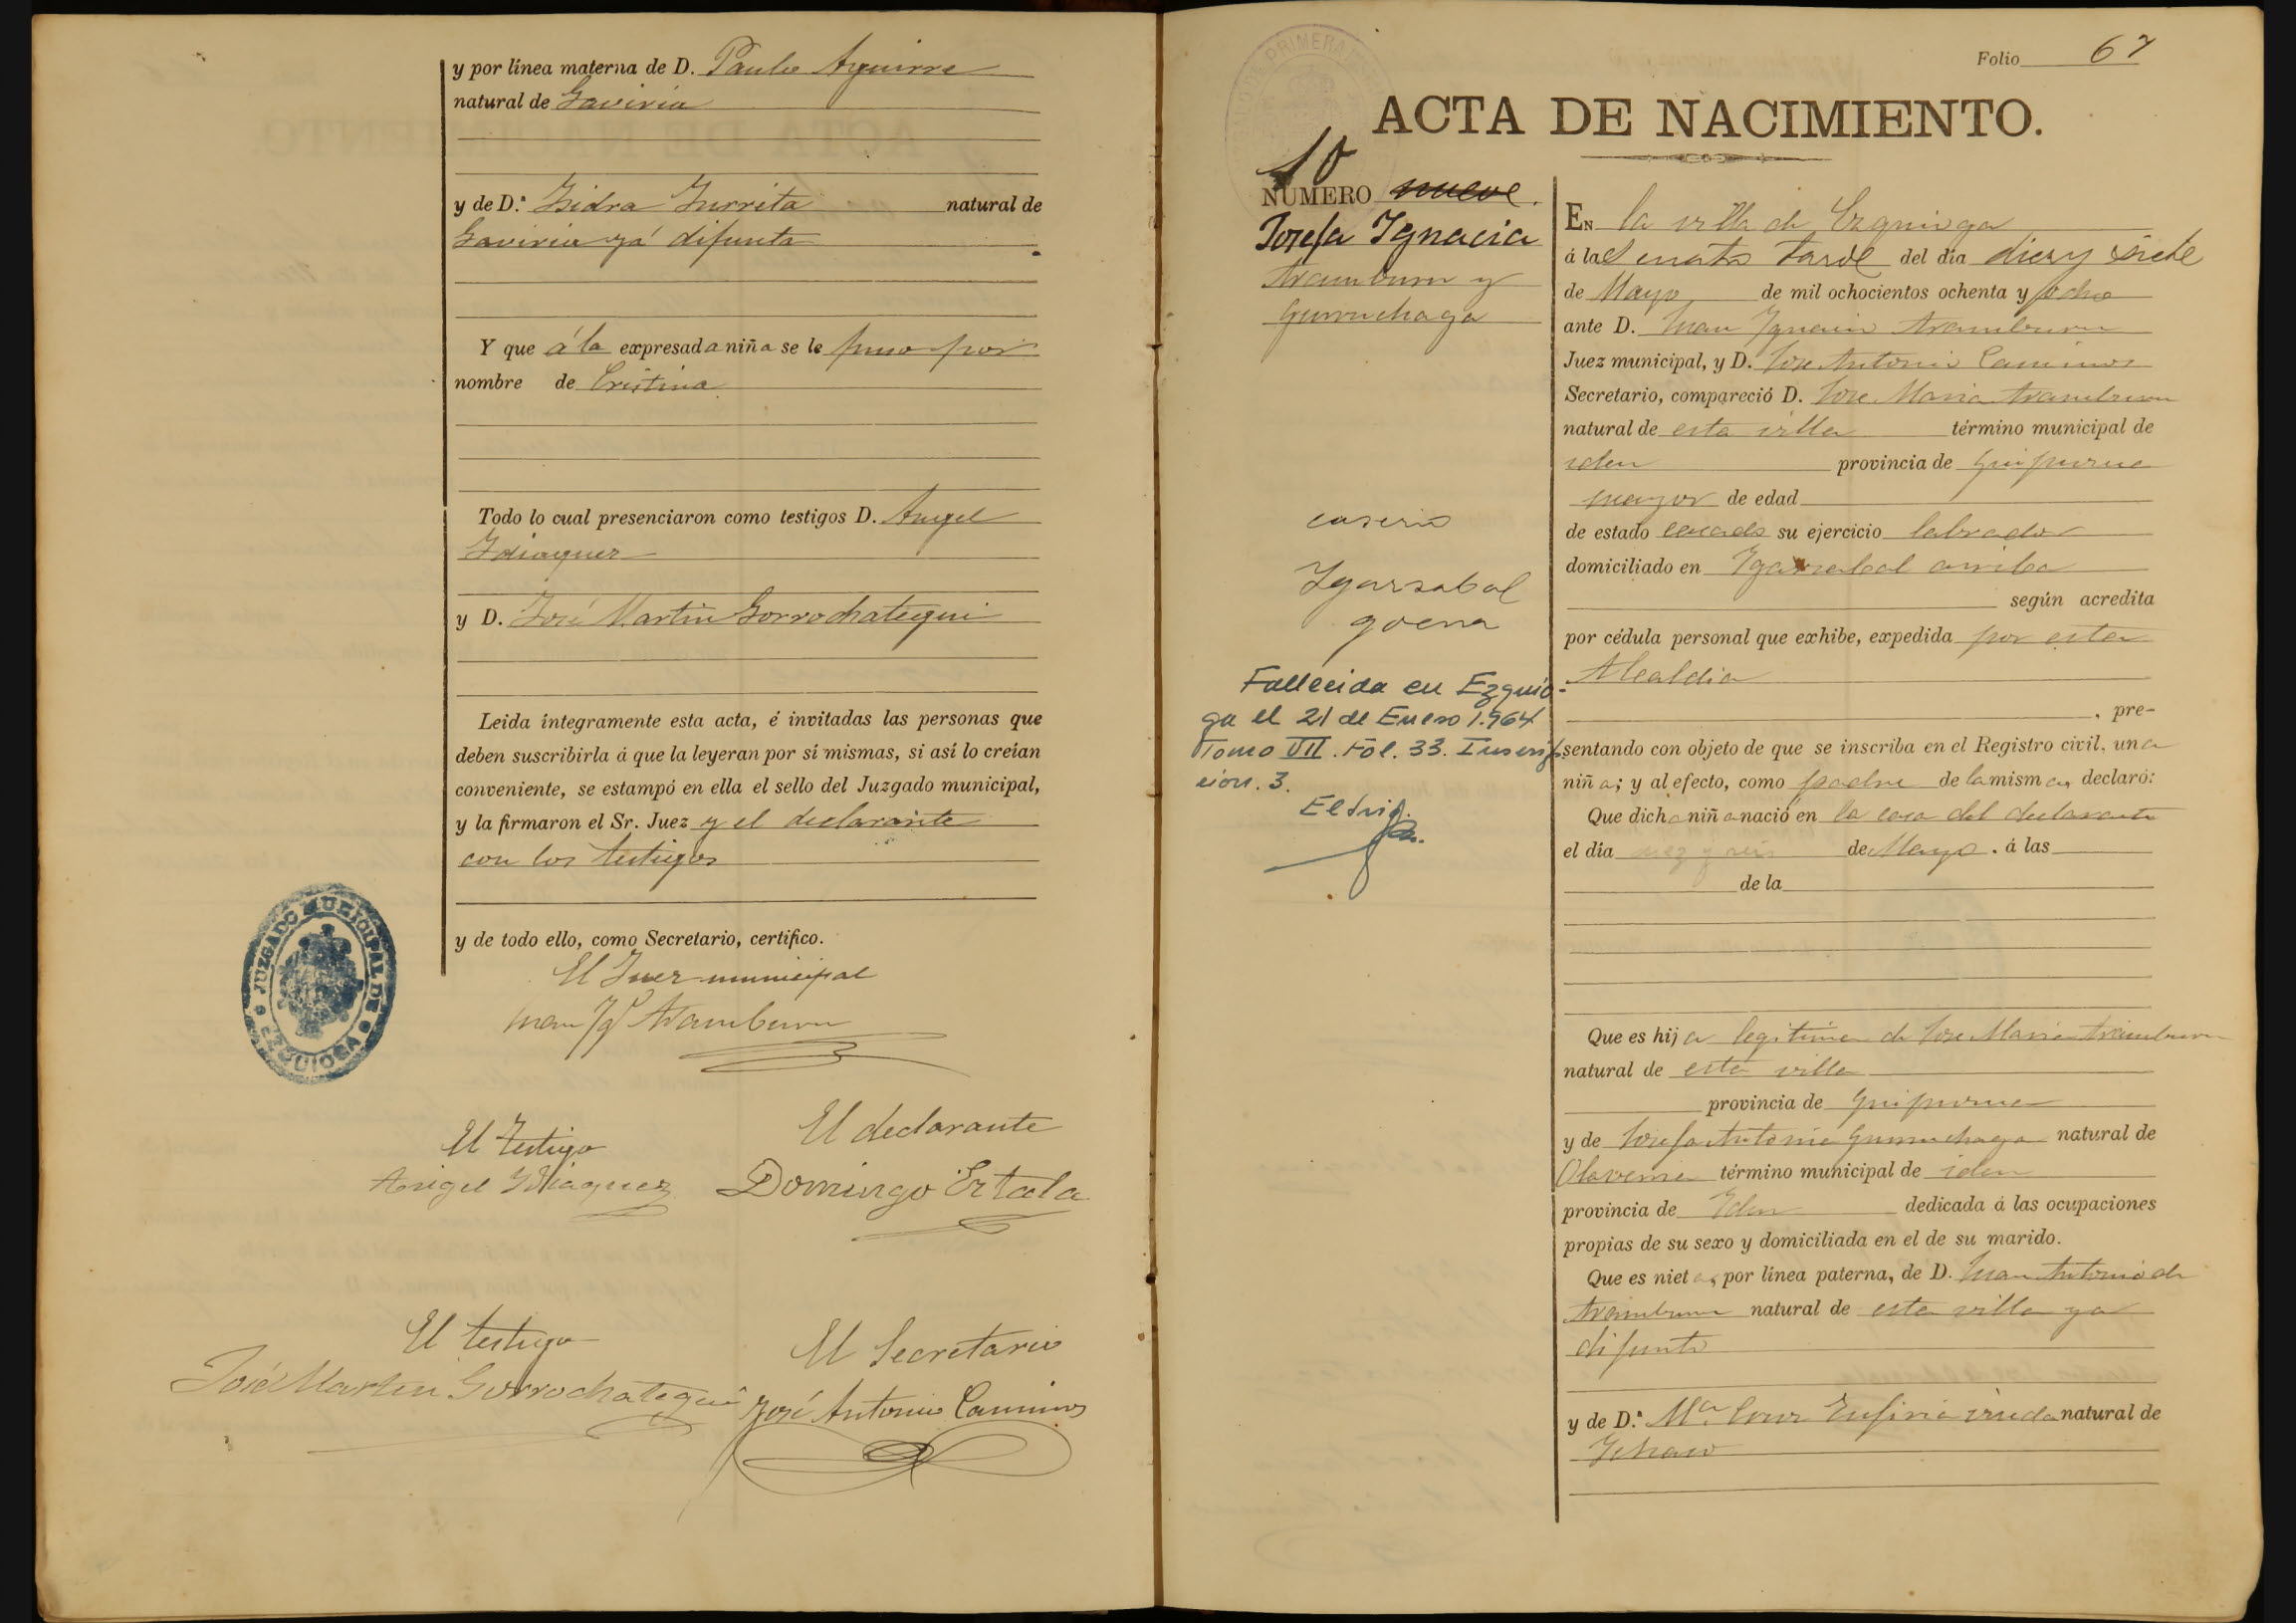 y por línea materna de D. Paulo Aguirre
natural de Gaviria
y de D.ª Isidra Iurrita natural de
Gaviria ya difunta
Y que á la expresada niña se le puso por
nombre de Cristina
Todo lo cual presenciaron como testigos D. Angel
Idiaquez
y D. José Martin Gorrochategui
Leida íntegramente esta acta, é invitadas las personas que
deben suscribirla á que la leyeran por sí mismas, si así lo creían
conveniente, se estampó en ella el sello del Juzgado municipal,
y la firmaron el Sr. Juez y el declarante
con los testigos
y de todo ello, como Secretario, certifico.
El Juez municipal
Juan Ygº Aramburu
JUZGADO MUNICIPAL DE EZQUIOGA
El testigo
Angel Idiaquez
El declarante
Domingo Ertala
El testigo
José Martin Gorrochategui
El Secretario
José Antonio Caminos
Folio 67
PRIMERA
ACTA DE NACIMIENTO.
10
NÚMERO nueve.
Josefa Ygnacia
Aramburu y
Gurruchaga
caserio
Ygarzabal
goena
Fallecida en Ezquio-
ga el 21 de Enero 1.964
Tomo VII. Fol. 33. Inscrip
cion. 3.
En la villa de Ezquioga
á las cuatro tarde del día diez y siete
de Mayo de mil ochocientos ochenta y ocho
ante D. Juan Ygnacio Aramburu
Juez municipal, y D. Jose Antonio Caminos
Secretario, compareció D. Jose Maria Aramburu
natural de esta villa término municipal de
iden provincia de Guipuzcoa
mayor de edad
de estado casado su ejercicio labrador
domiciliado en Ygarzabal arriba
según acredita
por cédula personal que exhibe, expedida por esta
Alcaldia
, pre-
sentando con objeto de que se inscriba en el Registro civil, una
niña; y al efecto, como padre de la misma, declaró:
Que dicha niña nació en la casa del declarante
el día diez y seis de Mayo. á las
de la
Que es hija legitima de Jose Maria Aramburu
natural de esta villa
provincia de Guipuzcoa
y de Josefa Antonia Gurruchaga natural de
Olaverria término municipal de iden
provincia de Iden dedicada á las ocupaciones
propias de su sexo y domiciliada en el de su marido.
Que es nieta, por línea paterna, de D. Juan Antonio de
Aramburu natural de esta villa ya
difunto
y de D.ª M.ª Cruz viuda natural de
Ychaso